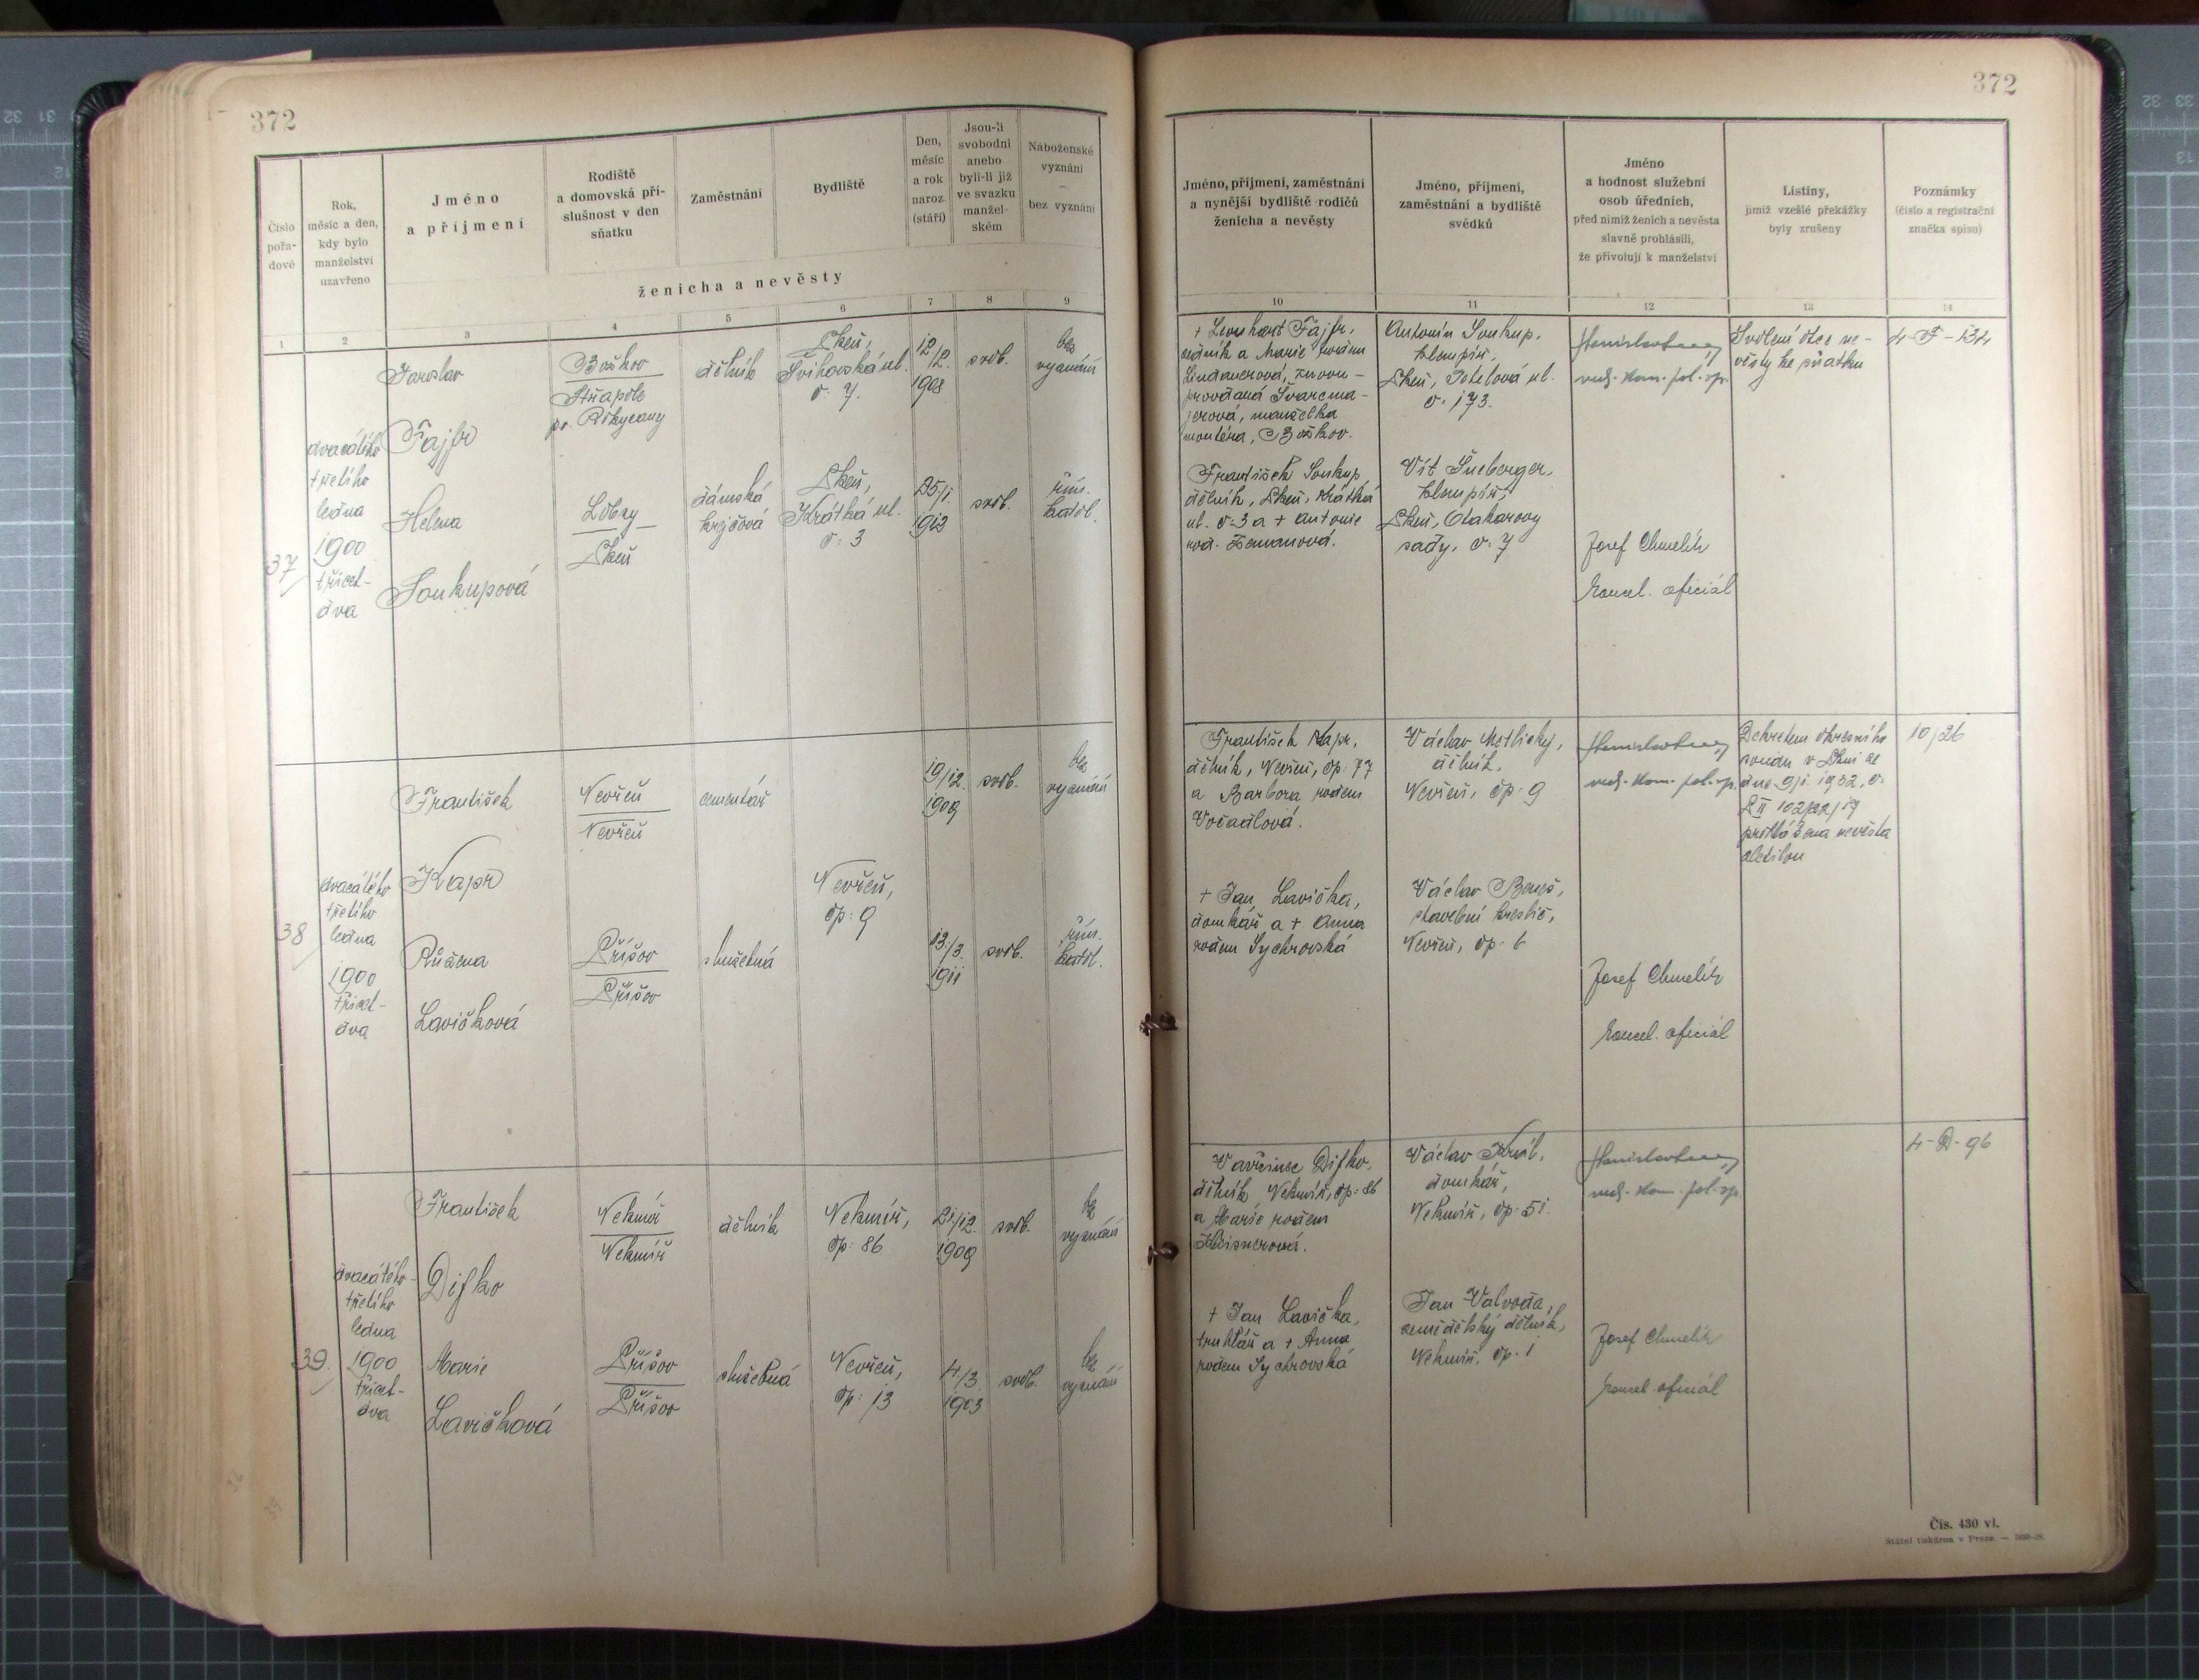 372
372
Číslo pořadové
Rok, měsíc a den, kdy bylo manželství uzavřeno
Jméno a příjmení
Rodiště a domovská příslušnost v den sňatku
Zaměstnání
Bydliště
Den, měsíc a rok naroz. (stáří)
Jsou-li svobodni anebo byli-li již ve svazku manželském
Náboženské vyznání — bez vyznání
ženicha a nevěsty
1 2 3 4 5 6 7 8 9
Jméno, příjmení, zaměstnání a nynější bydliště rodičů ženicha a nevěsty
Jméno, příjmení, zaměstnání a bydliště svědků
Jméno a hodnost služební osob úředních, před nimiž ženich a nevěsta slavně prohlásili, že přivolují k manželství
Listiny, jimiž vzešlé překážky byly zrušeny
Poznámky (číslo a registrační značka spisu)
10 11 12 13 14
37
dvacátého
třetího
ledna
1900
třicet-
dva
Jaroslav
Fajfr
Božkov
Střapole
p. Rokycany
dělník
Plzeň,
Švihovská ul.
č. 7.
12/12.
1908
svob.
bez
vyznání
Helena
Soukupová
Lobzy
Plzeň
dámská
krejčová
Plzeň,
Krátká ul.
č. 3
25/1.
1912
svob.
řím.
katol.
+ Leonhart Fajfr,
dělník a Marie rodem
Lindauerová, znovu-
provdaná Švarcma-
jerová, manželka
montéra, Božkov.
František Soukup
dělník, Plzeň, Krátká
ul. č. 3 a + Antonie
rod. Zemanová.
Antonín Soukup,
klempíř,
Plzeň,
č. 173.
Vít Šneberger,
klempíř,
Plzeň, Otakarovy
sady, č. 7
vrch. kom. pol. sp.
Josef Chmelík
kancel. oficiál
Svolení otce ne-
věsty ke sňatku
4-F-134
38
dvacátého
třetího
ledna
1900
třicet-
dva
František
Kapr
Nevřeň
Nevřeň
cementář
Nevřeň,
čp. 9
19/12.
1909
svob.
bez
vyznání
Růžena
Lavičková
Příšov
Příšov
služebná
13/3.
1911
svob.
řím.
katol.
František Kapr,
dělník, Nevřeň, čp. 77
a Barbora rodem
Vočadlová.
+ Jan Lavička,
domkář a + Anna
rodem Sychrovská
Václav Motlický,
dělník,
Nevřeň, čp. 9
Václav Beneš,
stavební kreslič,
Nevřeň, čp. 6
vrch. kom. pol. sp.
Josef Chmelík
kancel. oficiál
Dekretem okresního
soudu v Plzni ze
dne 9/1. 1932, č.
P II 102/22/19
prohlášena nevěsta
zletilou
10/26
39
dvacátého-
třetího
ledna
1900
třicet-
dva
František
Difko
Nekmíř
Nekmíř
dělník
Nekmíř,
čp. 86
21/12.
1909
svob.
bez
vyznání
Marie
Lavičková
Příšov
Příšov
služebná
Nevřeň,
čp. 13
4/3.
1903
svob.
bez
vyznání
Vavřinec Difko,
dělník, Nekmíř, čp. 86
a Marie rodem
+ Jan Lavička,
truhlář a + Anna
rodem Sychrovská
Václav Král,
domkář,
Nekmíř, čp. 51.
Jan Valvoda,
zemědělský dělník,
Nekmíř, čp. 1
vrch. kom. pol. sp.
Josef Chmelík
kancel. oficiál
4-D-96
Čís. 430 vl.
Státní tiskárna v Praze.